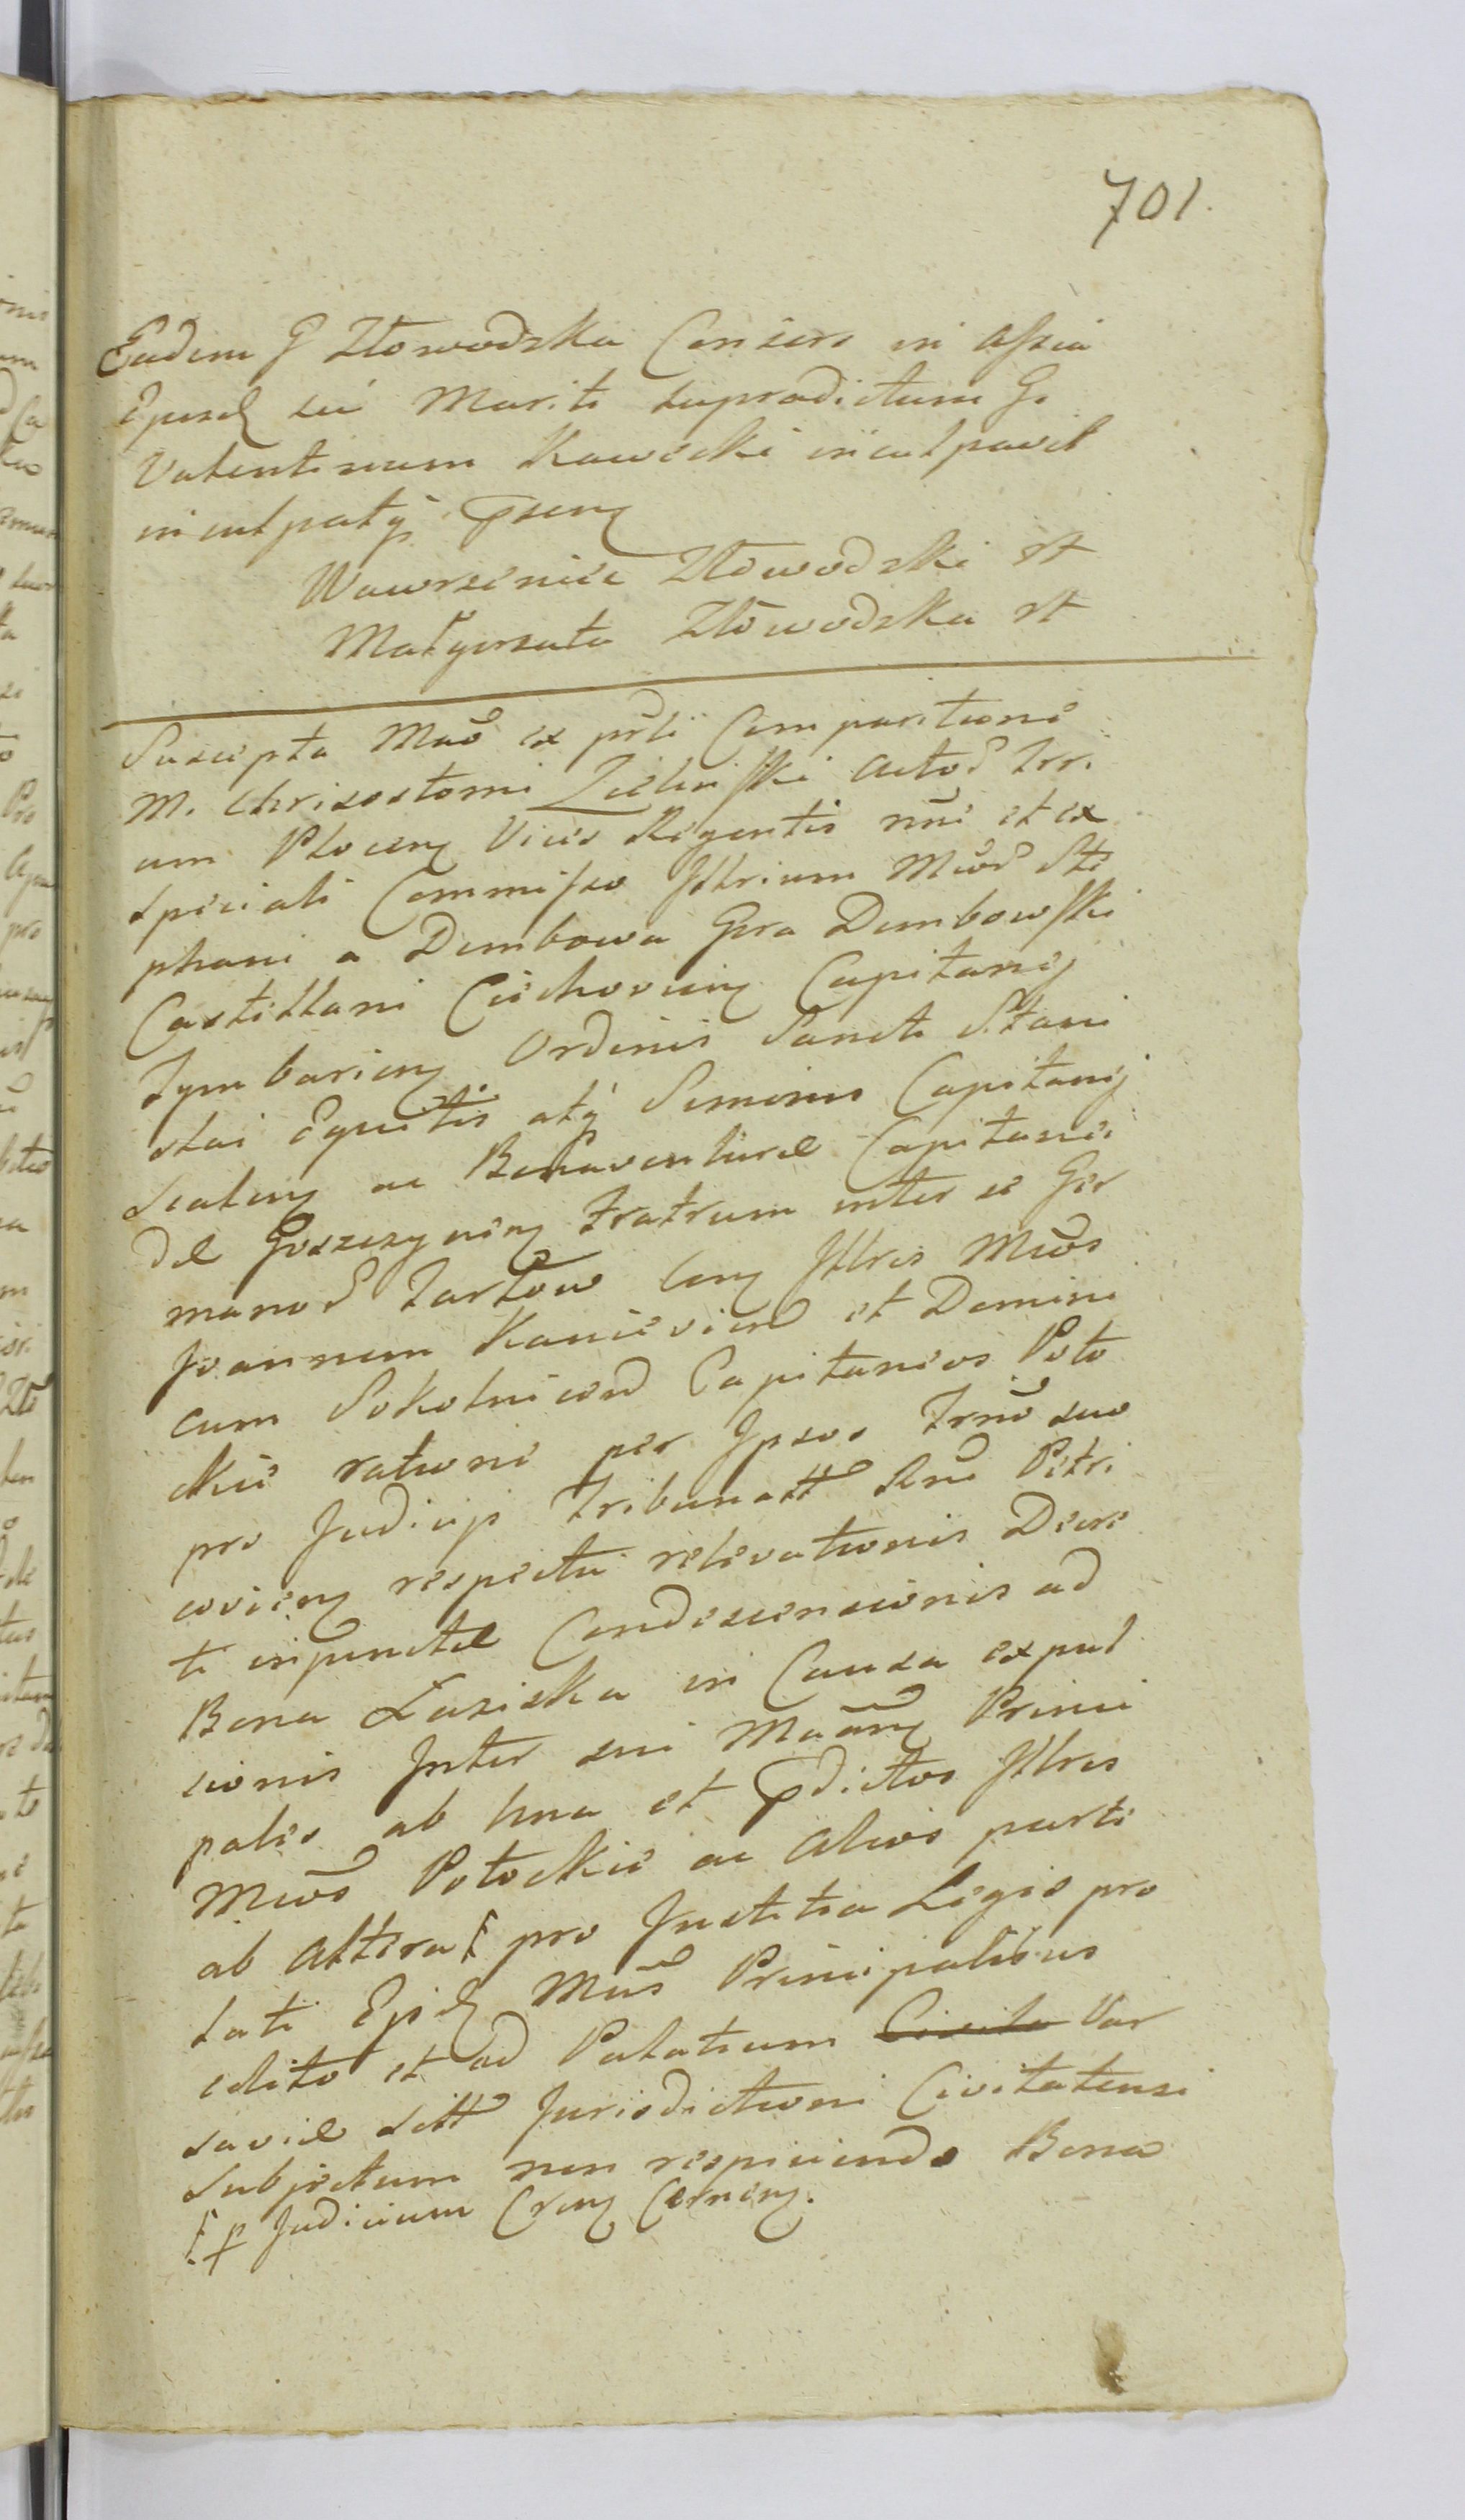 701.
Eadem G Złowodzka Consors in assia
Ejusd sui Mariti supradictum G.
Valentinum Kawecki inculpavit
inculpatq
Wawrzeniec Złowodzki
Małgorzata Złowodzka
Suscepta Mao ex prli Comparitione
M. Chrisostomi Zielinski Actor Trr.
um Plocen Vices Regentis nune et ex
speciali Commisso Illrium Mcor Ste
phani a Dembowa Gora Dembowski
Castellani Ciechovien Capitanej
Tymbarien Ordinis Sancti Stani
slai Equitis atq Simonis Capitanej
Scalen ac Bonaventuræ Capitanei
dæ Goszczynien Fratrum inter se Ger
manor Tarłow Con Illres Mcos
Joannem Kanieviend et Domini
cum Sokolnicend Capitaneos Poto
ckie ratione per Ipsos Trno suo
pro Judicijs Tribunatt Rni Petri
covien respectu relevationis Decre
ti injunctæ Condescensionis ad
Bona Łaziska in Causa expul
sionis Inter sui Maann Princi
pales ab Una et pdictos Illres
Mcos Potockie ac Alios parte
ab Altera pro Justitia Legis pro
lati Ejsd Mcis Principalibus
edito et ad Palatium Civita Var
saviæ sitt Jurisdictioni Civitatensi
subjectum non respiciendo Bona
p Judicium Cren